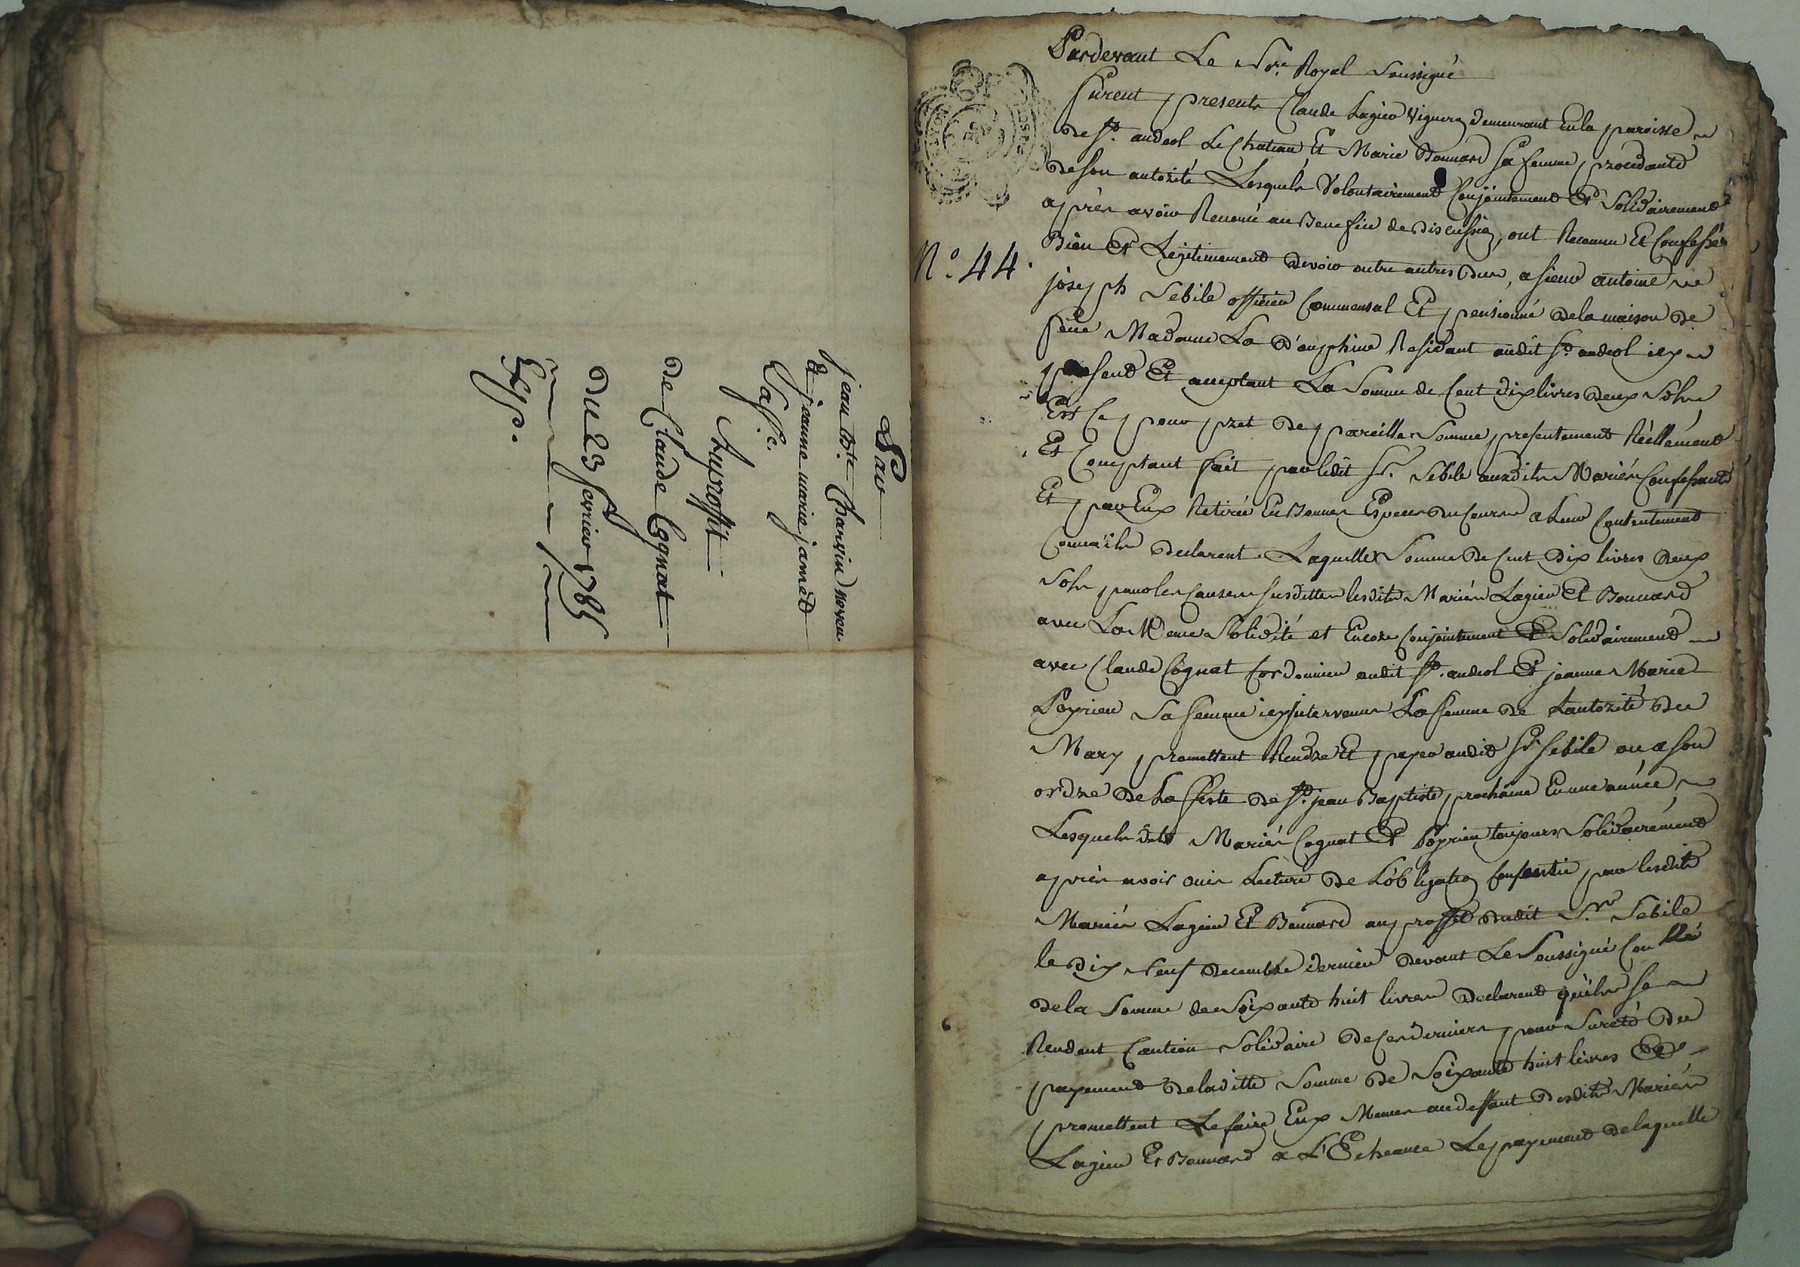 Par
jean Bte Charvin neveu
& jeanne marie jamet
Sa fe.
Au proffit
de Claude Cognat
Du 23 fevrier 1785
Exp.
Pardevant Le Nre Royal Soussigné
furent presents Claude Lagier Vigneron demeurant En la paroisse
de St. andeol Le Chateau Et Marie Bonnard Sa femme procedante
de son autorité Lesquels Volontairement Conjointement Et Solidairement
après avoir Renoncé au Benefice de Discussion, ont Reconnu Et Confessé
N.º 44.
Bien Et Legitimement devoir entre autres dus, a sieur antoine
joseph Sebile officier Commensal Et pensionné de la maison de
feüe Madame La Dauphine Residant audit St. andeol icy
present Et acceptant La Somme de Cent dix livres deux Sols
Est Ce pour pret De pareille Somme presentement Réellement
Et Comptant fait par ledit Sr. Sebile auxdits Mariés Confessants
Et par Eux Retirée En Bonnes Especes du Cours a Leur Contentement
Comme ils declarent. Laquelle Somme de Cent Dix livres deux
Sols pour les causes susdittes lesdits Mariés Lagier Et Bonnard
avec La Meme Solidité et Encore Conjointement Et Solidairement
avec Claude Cognat Cordonnier audit St. andeol Et jeanne Marie
Poyrieu Sa femme icy intervenus La femme de Lautorité Du
Mary promettent Rendre Et payer audit Sr. Sebile ou a son
ordre De La feste de St. jean Baptiste prochaine En une année
Lesquels dits Mariés Cognat Et Poyrieu toujours Solidairement
après avoir ouis Lecture de Lobligation Consentie par lesdits
Mariés Lagier Et Bonnard au proffit dudit Sr. Sebile
le dix neuf decembre dernier devant Le Soussigné Conllé
de la Somme de Soixante huit livres Declarent qu'ils se
Rendent Caution Solidaire De ces derniers pour Sureté Du
payement De laditte Somme De Soixante huit livres Et
promettent Le faire Eux Memes au deffaut Desdits Mariés
Lagier Et Bonnard a L'Echeance Le payement de laquelle